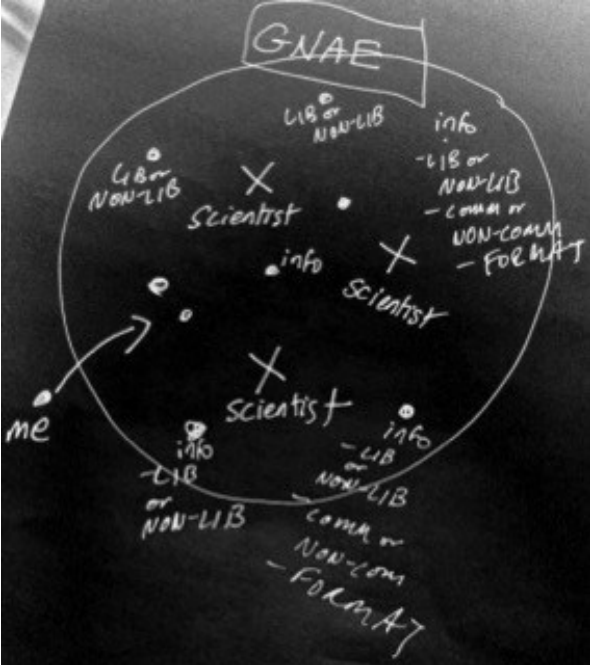 GNAE
LIB or
NON-LIB
info
-LIB or
NON-LIB
- COMM or
NON-COMM
- FORMAT
LIB or
NON-LIB
Scientist
info
Scientist
me
Scientist
info
-LIB
or
NON-LIB
info
-LIB
or
NON-LIB
- COMM or
NON-COM
- FORMAT